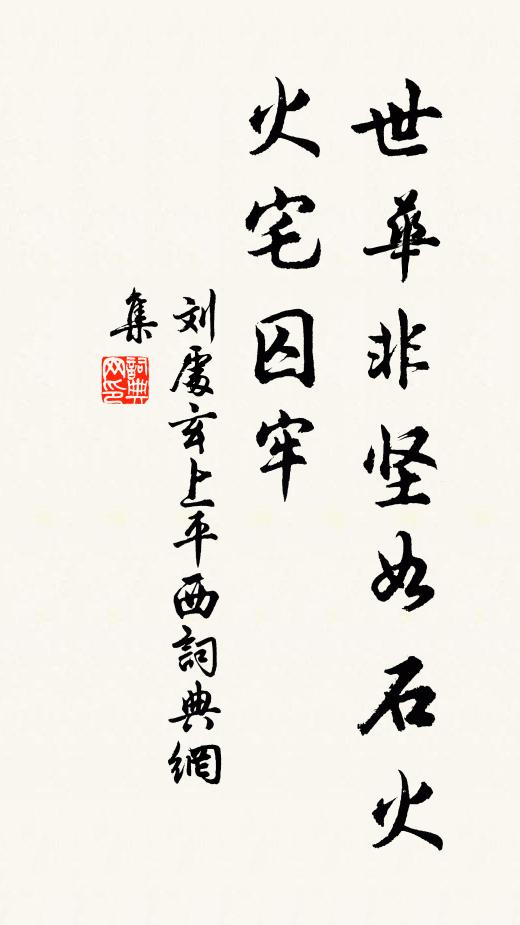 世華非坚如石火
火宅囚牢
刘處玄上平西詞典網
集
詞典
网印